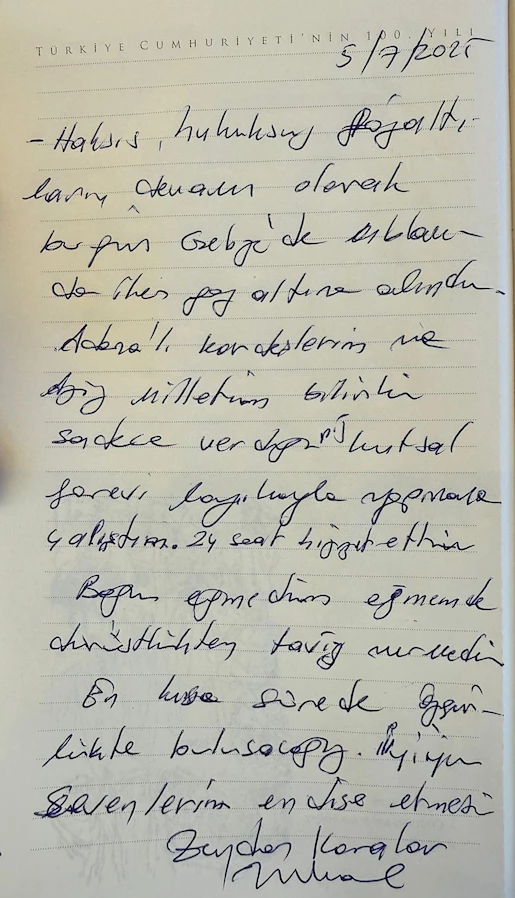 TÜRKİYE CUMHURİYETİ'NİN 100. YILI
5/7/2025
- Haksız, hukuksuz gözaltı-
ların devamı olarak
bugün Gebze'de ablam-
da iken göz altına alındım.
Adana'lı kardeşlerim ve
aziz milletim bilsin
sadece verdiğiniz kutsal
görevi layıkıyla yapmaya
çalıştım. 24 saat hizmet ettim
Boyun eğmedim eğmemde
dürüstlükten taviz vermedim
En kısa sürede özgür-
lükte buluşacağız. İyiyim
Sevenlerim endişe etmesin
Zeydan Karalar